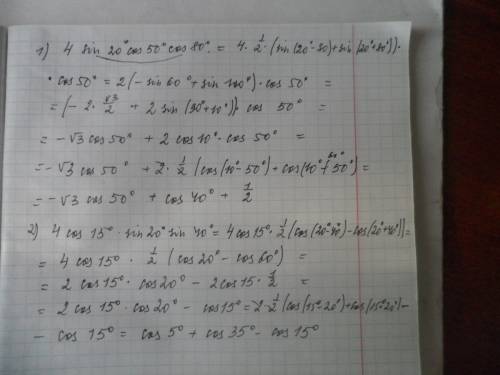 1) 4 sin 20° cos 50° cos 80° = 4 · 1/2 · (sin(20°-80)+sin(20°+80°)) ·
· cos 50° = 2(- sin 60° + sin 100°) · cos 50° =
= (- 2 · √3/2 + 2 sin (90°+10°)) · cos 50° =
= - √3 cos 50° + 2 cos 10° · cos 50° =
= - √3 cos 50° + 2 · 1/2 (cos(10°-50°) + cos(10°+50°)) =
= - √3 cos 50° + cos 40° + 1/2
2) 4 cos 15° · sin 20° sin 40° = 4 cos 15° · 1/2 (cos(20°-40°) - cos(20°+40°)) =
= 4 cos 15° · 1/2 (cos 20° - cos 60°) =
= 2 cos 15° · cos 20° - 2 cos 15 · 1/2 =
= 2 cos 15° · cos 20° - cos 15° = 2 · 1/2 (cos(15°-20°) + cos(15°+20°) -
- cos 15° = cos 5° + cos 35° - cos 15°